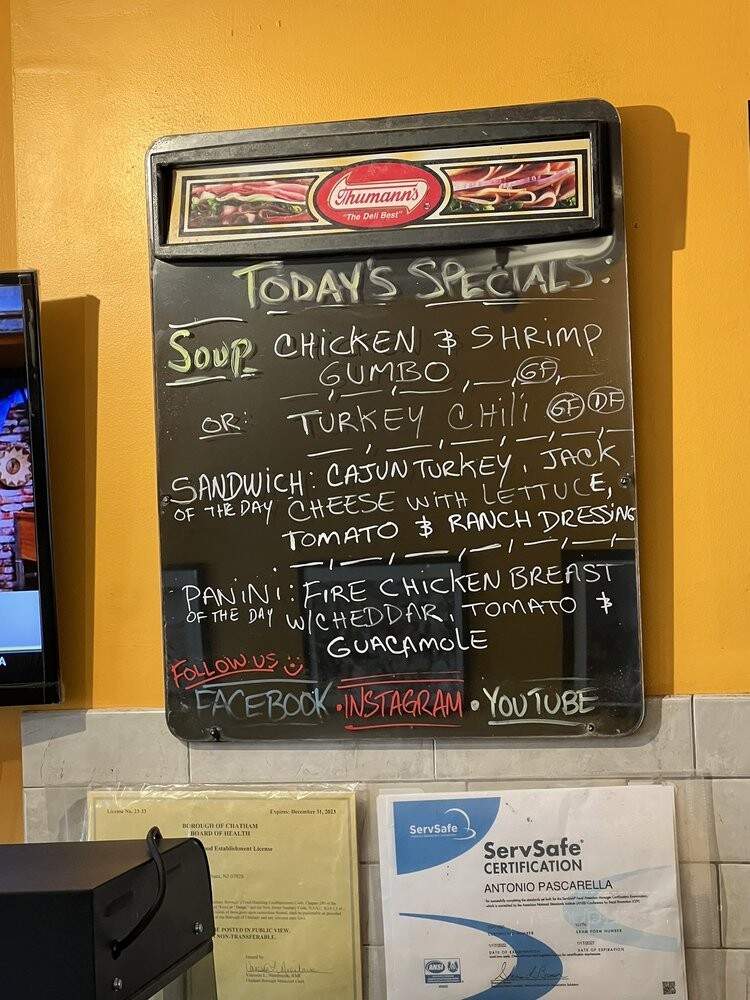 Thumann's
"The Deli Best"
TODAY'S SPECIALS:
SOUP CHICKEN & SHRIMP
GUMBO GF
OR: TURKEY CHILI GF DF
SANDWICH: CAJUN TURKEY, JACK
OF THE DAY CHEESE WITH LETTUCE,
TOMATO & RANCH DRESSING
PANINI: FIRE CHICKEN BREAST
OF THE DAY W/CHEDDAR, TOMATO &
GUACAMOLE
FOLLOW US
FACEBOOK • INSTAGRAM • YOUTUBE
License No. 23-33 Expires: December 31, 2023
BOROUGH OF CHATHAM
BOARD OF HEALTH
Establishment License
POSTED IN PUBLIC VIEW.
NON-TRANSFERABLE.
ServSafe
ServSafe®
CERTIFICATION
ANTONIO PASCARELLA
EXAM FORM NUMBER
DATE OF EXPIRATION
ANSI
A